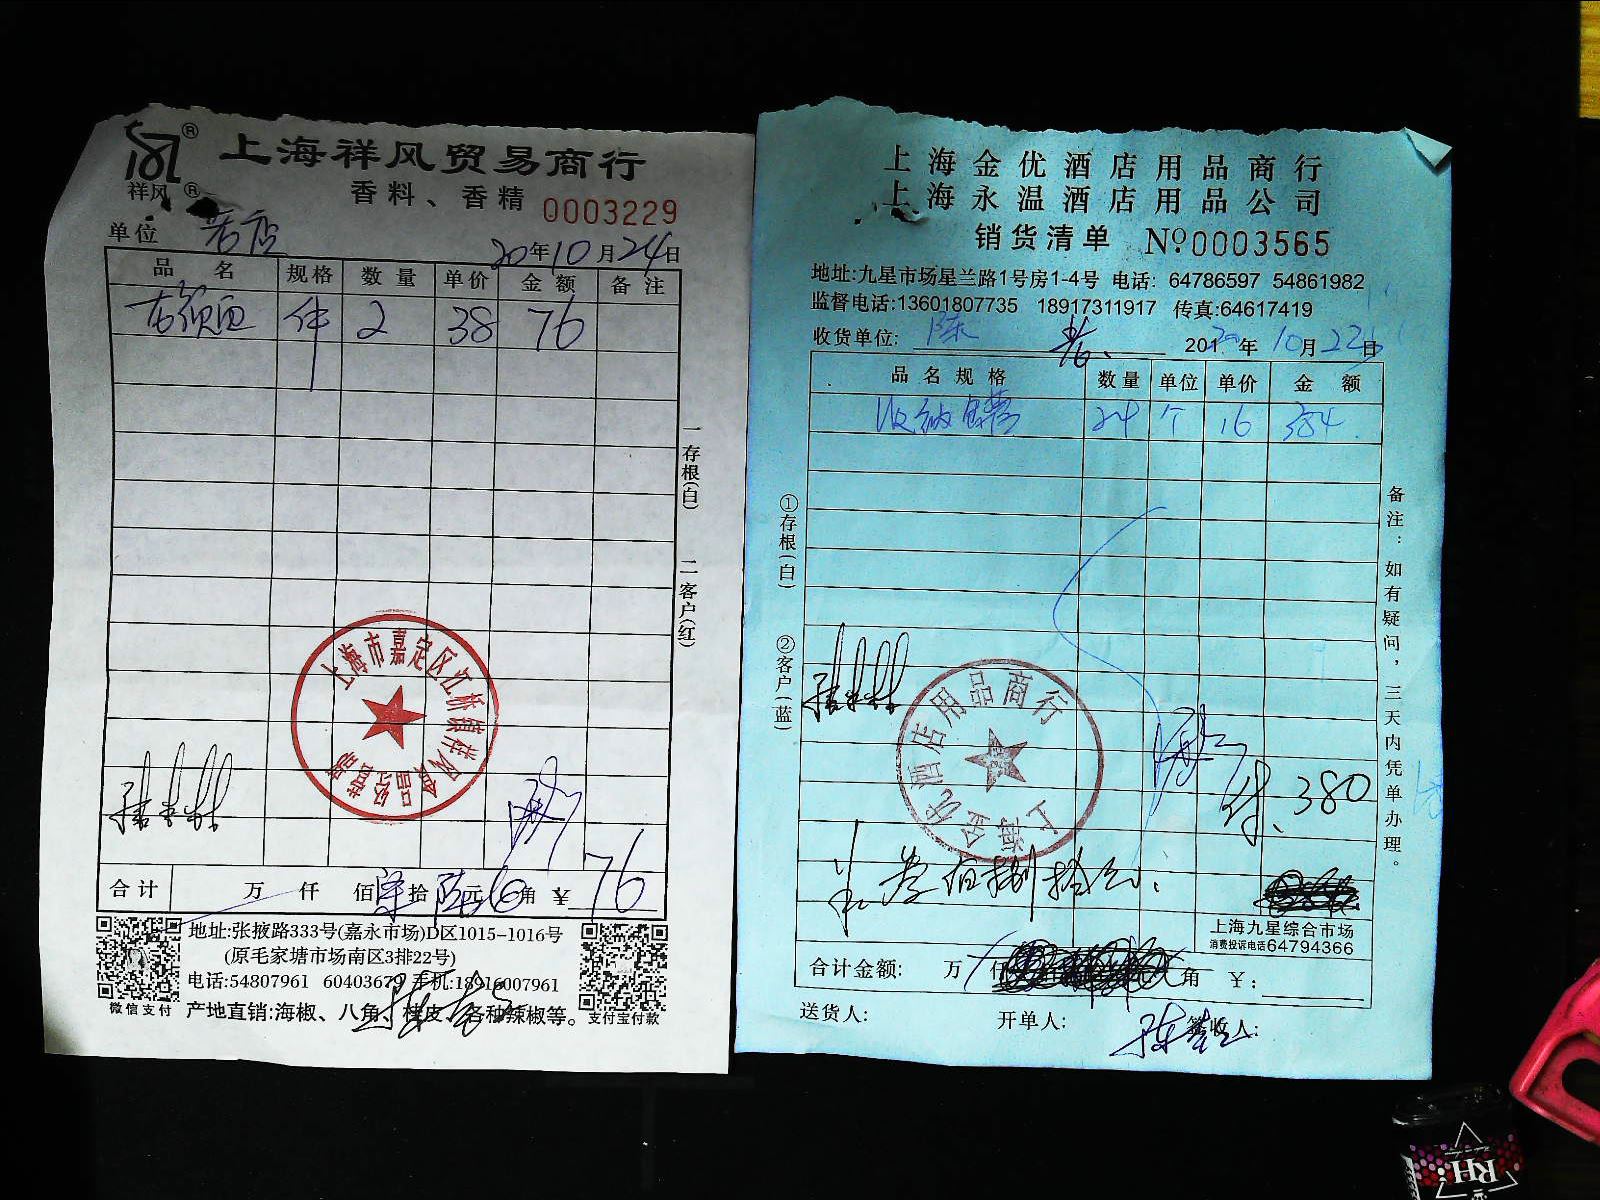 上海祥风贸易商行
祥风
香料、香精 0003229
单位 老店 20年10月24日
品名 规格 数量 单价 金额 备注
件 2 38 76
一存根(白) 二客户(红)
上海市嘉定区江桥镇祥风食品经营部
合计 万 仟 佰 柒拾陆元 角 ¥ 76
地址:张掖路333号(嘉永市场)D区1015-1016号
(原毛家塘市场南区3排22号)
电话:54807961 60403679 手机:18916007961
微信支付 产地直销:海椒、八角、桂皮、各种辣椒等。 支付宝付款
上海金优酒店用品商行
上海永温酒店用品公司
销货清单 Nº0003565
地址:九星市场星兰路1号房1-4号 电话: 64786597 54861982
监督电话:13601807735 18917311917 传真:64617419
收货单位: 陈 老 2020年10月22日
品名规格 数量 单位 单价 金额
收纳 24 个 16 384
①存根(白) ②客户(蓝)
备注:如有疑问,三天内凭单办理。
上海金优酒店用品商行
付、380
叁佰捌拾元
上海九星综合市场
消费投诉电话64794366
合计金额: 万 仟 角 ¥:
送货人: 开单人: 签收人:
RH